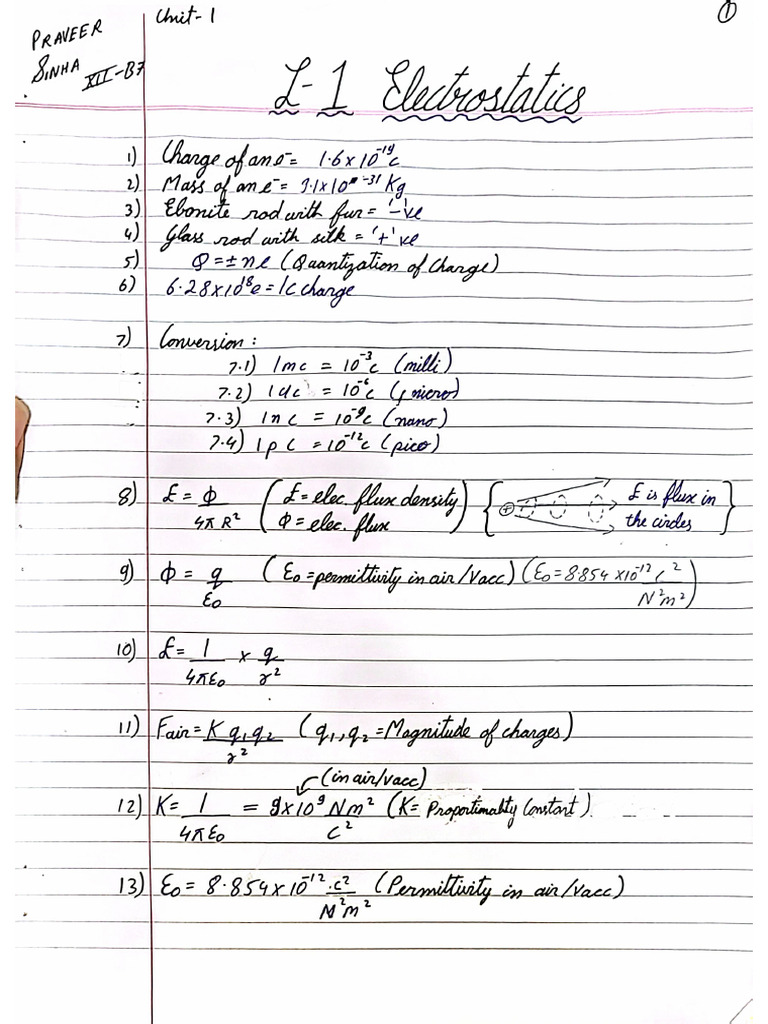 PRAVEER
SINHA XII-B7
Unit-1
①
L-1 Electrostatics
1) Charge of an e⁻= 1.6x10⁻¹⁹c
2) Mass of an e⁻= 9.1x10⁻³¹ Kg
3) Ebonite rod with fur = '-'ve
4) Glass rod with silk = '+'ve
5) Q=±ne (Quantization of Charge)
6) 6.28x10¹⁸e=1C charge
7) Conversion :
7.1) 1mc = 10⁻³c (milli)
7.2) 1μc = 10⁻⁶c (micro)
7.3) 1nc = 10⁻⁹c (nano)
7.4) 1pc = 10⁻¹²c (pico)
8) E = ϕ/4πR² (E=elec. flux density ϕ = elec. flux) {E is flux in the circles}
9) ϕ = q/ε₀ (ε₀=permittivity in air/vacc) (ε₀=8.854x10⁻¹² c²/N²m²)
10) E= 1/4πε₀ x q/r²
11) Fair= K q₁q₂/r² (q₁,q₂=Magnitude of charges)
(in air/vacc)
12) K= 1/4πε₀ = 9x10⁹ Nm²/C² (K= Proportionality Constant)
13) ε₀= 8.854x10⁻¹².c²/N²m² (Permittivity in air/vacc)